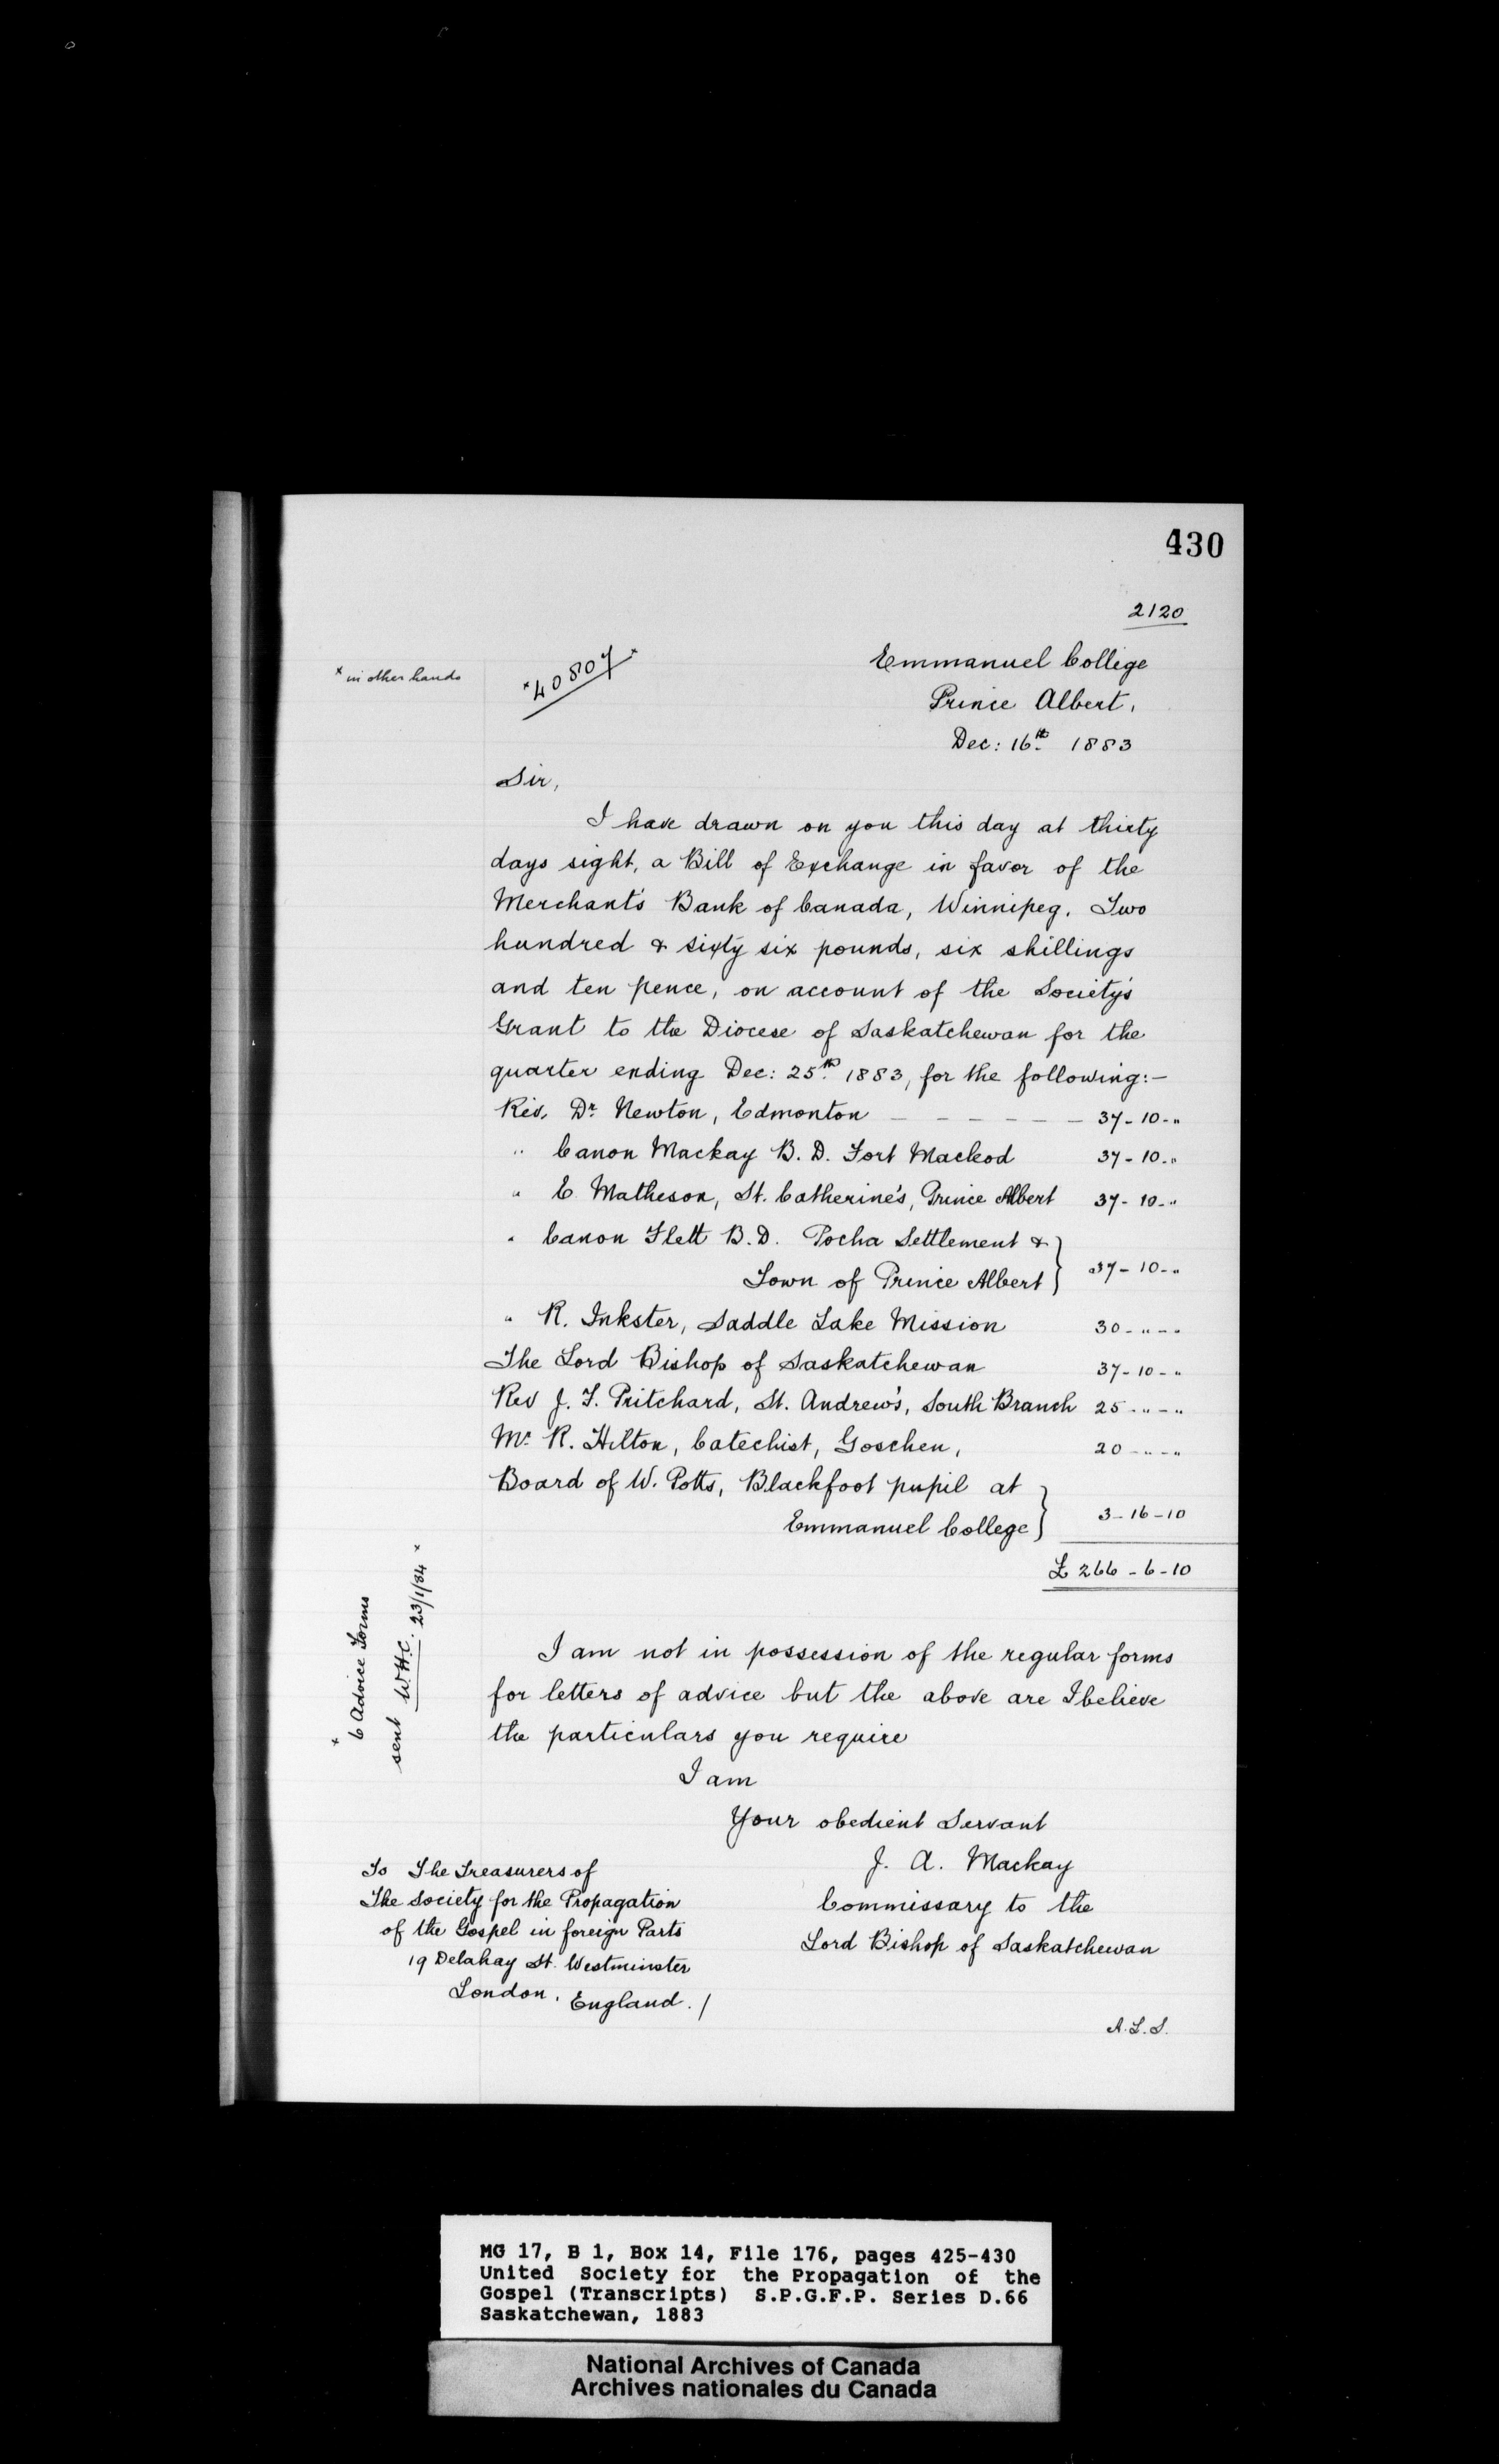 430
2120
x in other hands
x 40807 x
Emmanuel College
Prince Albert,
Dec: 16th 1883
Sir,
I have drawn on you this day at thirty
days sight, a Bill of Exchange in favor of the
Merchant's Bank of Canada, Winnipeg. Two
hundred & sixty six pounds, six shillings
and ten pence, on account of the Society's
Grant to the Diocese of Saskatchewan for the
quarter ending Dec: 25th 1883, for the following:-
Rev. Dr. Newton, Edmonton - - - - - - 37-10-"
" Canon Mackay B.D. Fort Macleod 37-10-"
" E. Matheson, St. Catherine's, Prince Albert 37-10-"
" Canon Flett B.D. Pocha Settlement & }
Town of Prince Albert } 37-10-"
" R. Inkster, Saddle Lake Mission 30-"-"
The Lord Bishop of Saskatchewan 37-10-"
Rev J. F. Pritchard, St. Andrew's, South Branch 25-"-"
Mr. R. Hilton, Catechist, Goschen, 20-"-"
Board of W. Potts, Blackfoot pupil at }
Emmanuel College } 3-16-10
£ 266-6-10
x 6 Advice Forms
sent W.H.C. 23/1/84 x
I am not in possession of the regular forms
for letters of advice but the above are I believe
the particulars you require
I am
Your obedient Servant
J. A. Mackay
Commissary to the
Lord Bishop of Saskatchewan
To The Treasurers of
The Society for the Propagation
of the Gospel in foreign Parts
19 Delahay St. Westminster
London, England. /
A.L.S.
MG 17, B 1, Box 14, File 176, pages 425-430
United Society for the Propagation of the
Gospel (Transcripts) S.P.G.F.P. Series D.66
Saskatchewan, 1883
National Archives of Canada
Archives nationales du Canada